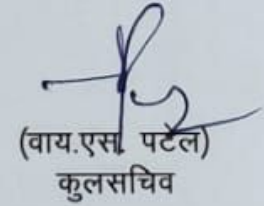 (वाय.एस. पटेल)
कुलसचिव